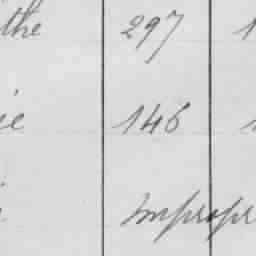 the 297 1
ie 146
impropr